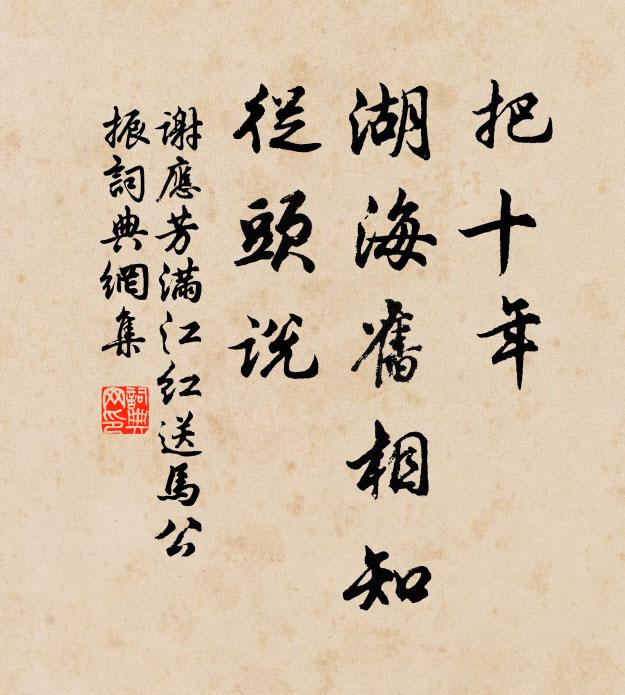 把十年
湖海舊相知
從頭説
谢應芳满江红送馬公
振詞典網集
詞典
网印